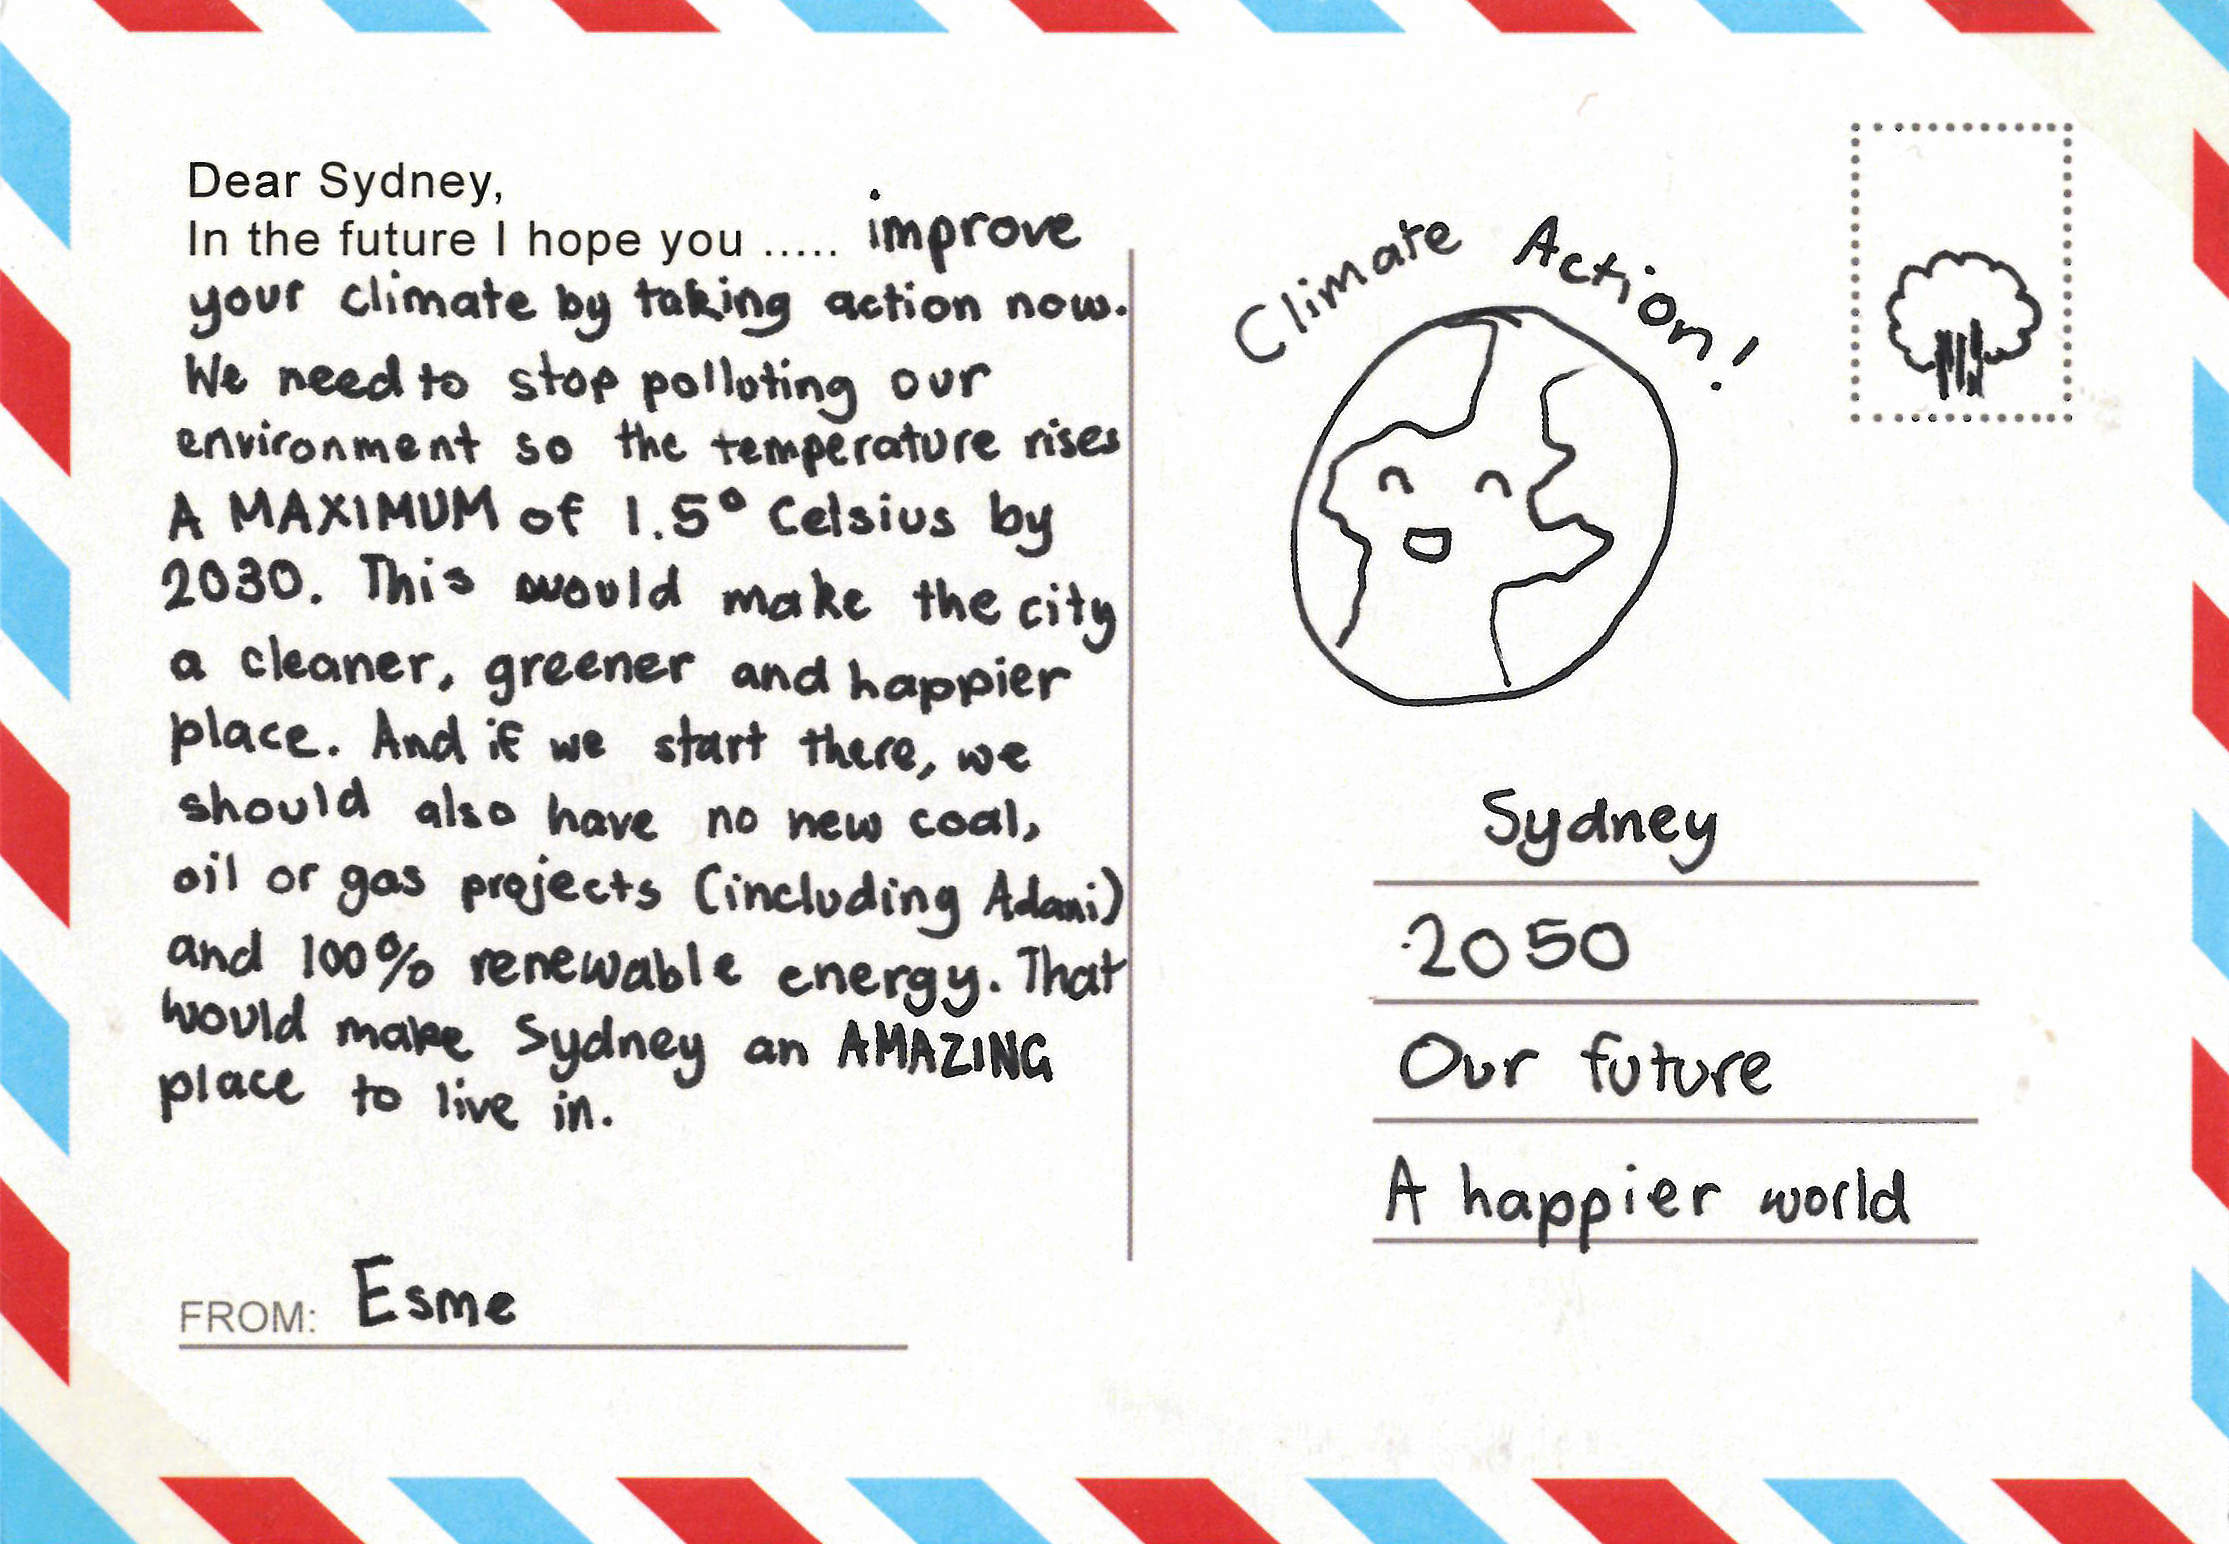 Dear Sydney,
In the future I hope you ..... improve
your climate by taking action now.
We need to stop polluting our
environment so the temperature rises
A MAXIMUM of 1.5° Celsius by
2030. This would make the city
a cleaner, greener and happier
place. And if we start there, we
should also have no new coal,
oil or gas projects (including Adani)
and 100% renewable energy. That
would make Sydney an AMAZING
place to live in.
FROM: Esme
Climate Action!
Sydney
2050
Our future
A happier world